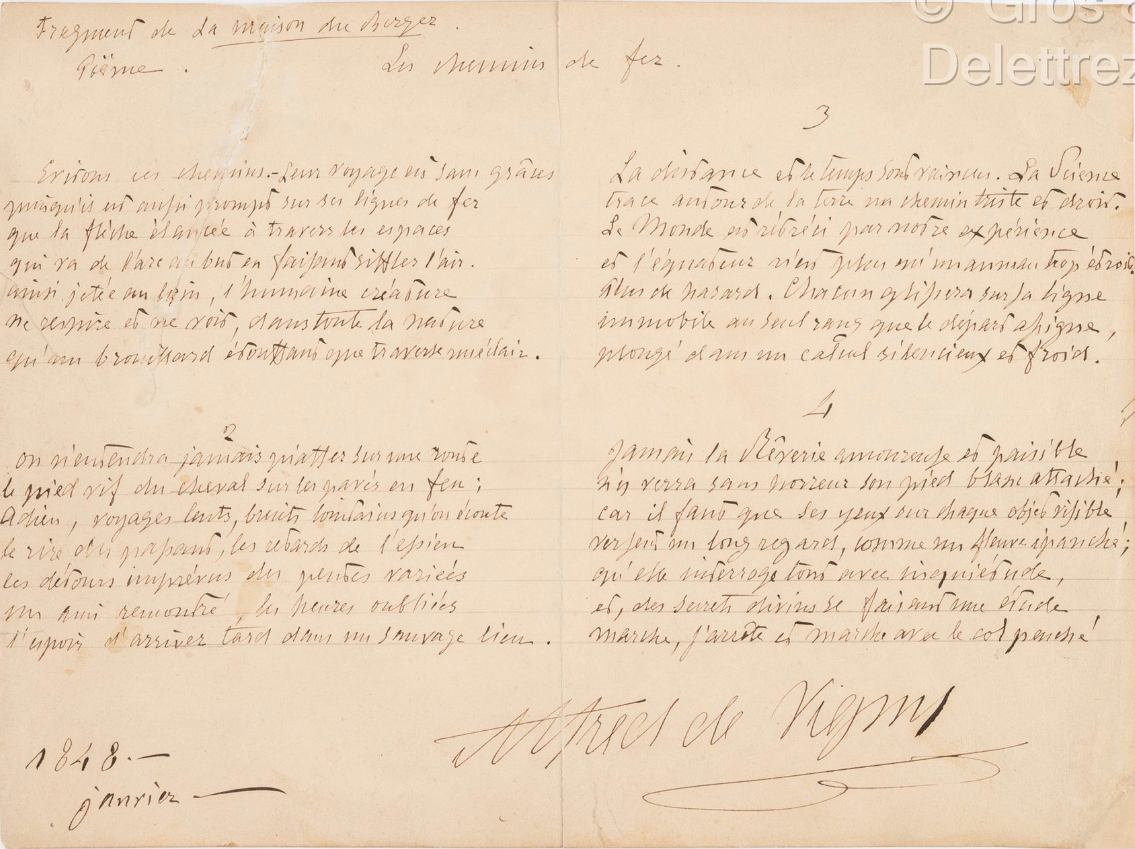 Fragment de La maison du Berger.
Poëme.
Les chemins de fer.
Evitons ces chemins. - Leur voyage est sans grâces
puisqu'il est aussi prompt sur ses lignes de fer
que la flèche élancée à travers les espaces
qui va de l'arc au but en faisant siffler l'air.
ainsi jetée au loin, l'humaine créature
ne respire et ne voit, dans toute la nature
qu'un brouillard étouffant que traverse un éclair.
2
on n'entendra jamais piaffer sur une route
le pied vif du cheval sur les pavés en feu ;
Adieu, voyages lents, bruits lointains qu'on écoute
le rire du passant, les retards de l'essieu
les détours imprévus des pentes variées
un ami rencontré, les heures oubliées
l'espoir d'arriver tard dans un sauvage lieu.
3
La distance et le temps sont vaincus. La Science
trace autour de la terre un chemin triste et droit.
Le Monde est rétréci par notre expérience
et l'équateur n'est plus qu'un anneau trop étroit.
Plus de hasard. Chacun glissera sur sa ligne
immobile au seul rang que le départ assigne,
plongé dans un calcul silencieux et froid.
4
Jamais la Rêverie amoureuse et paisible
n'y verra sans horreur son pied blanc attaché ;
car il faut que ses yeux sur chaque objet visible
versent un long regard, comme un fleuve épanché ;
qu'elle interroge tout avec inquiétude,
et, des secrets divins se faisant une étude
marche, s'arrête et marche avec le col penché
Alfred de Vigny
1848. -
janvier -
© Gros &
Delettrez